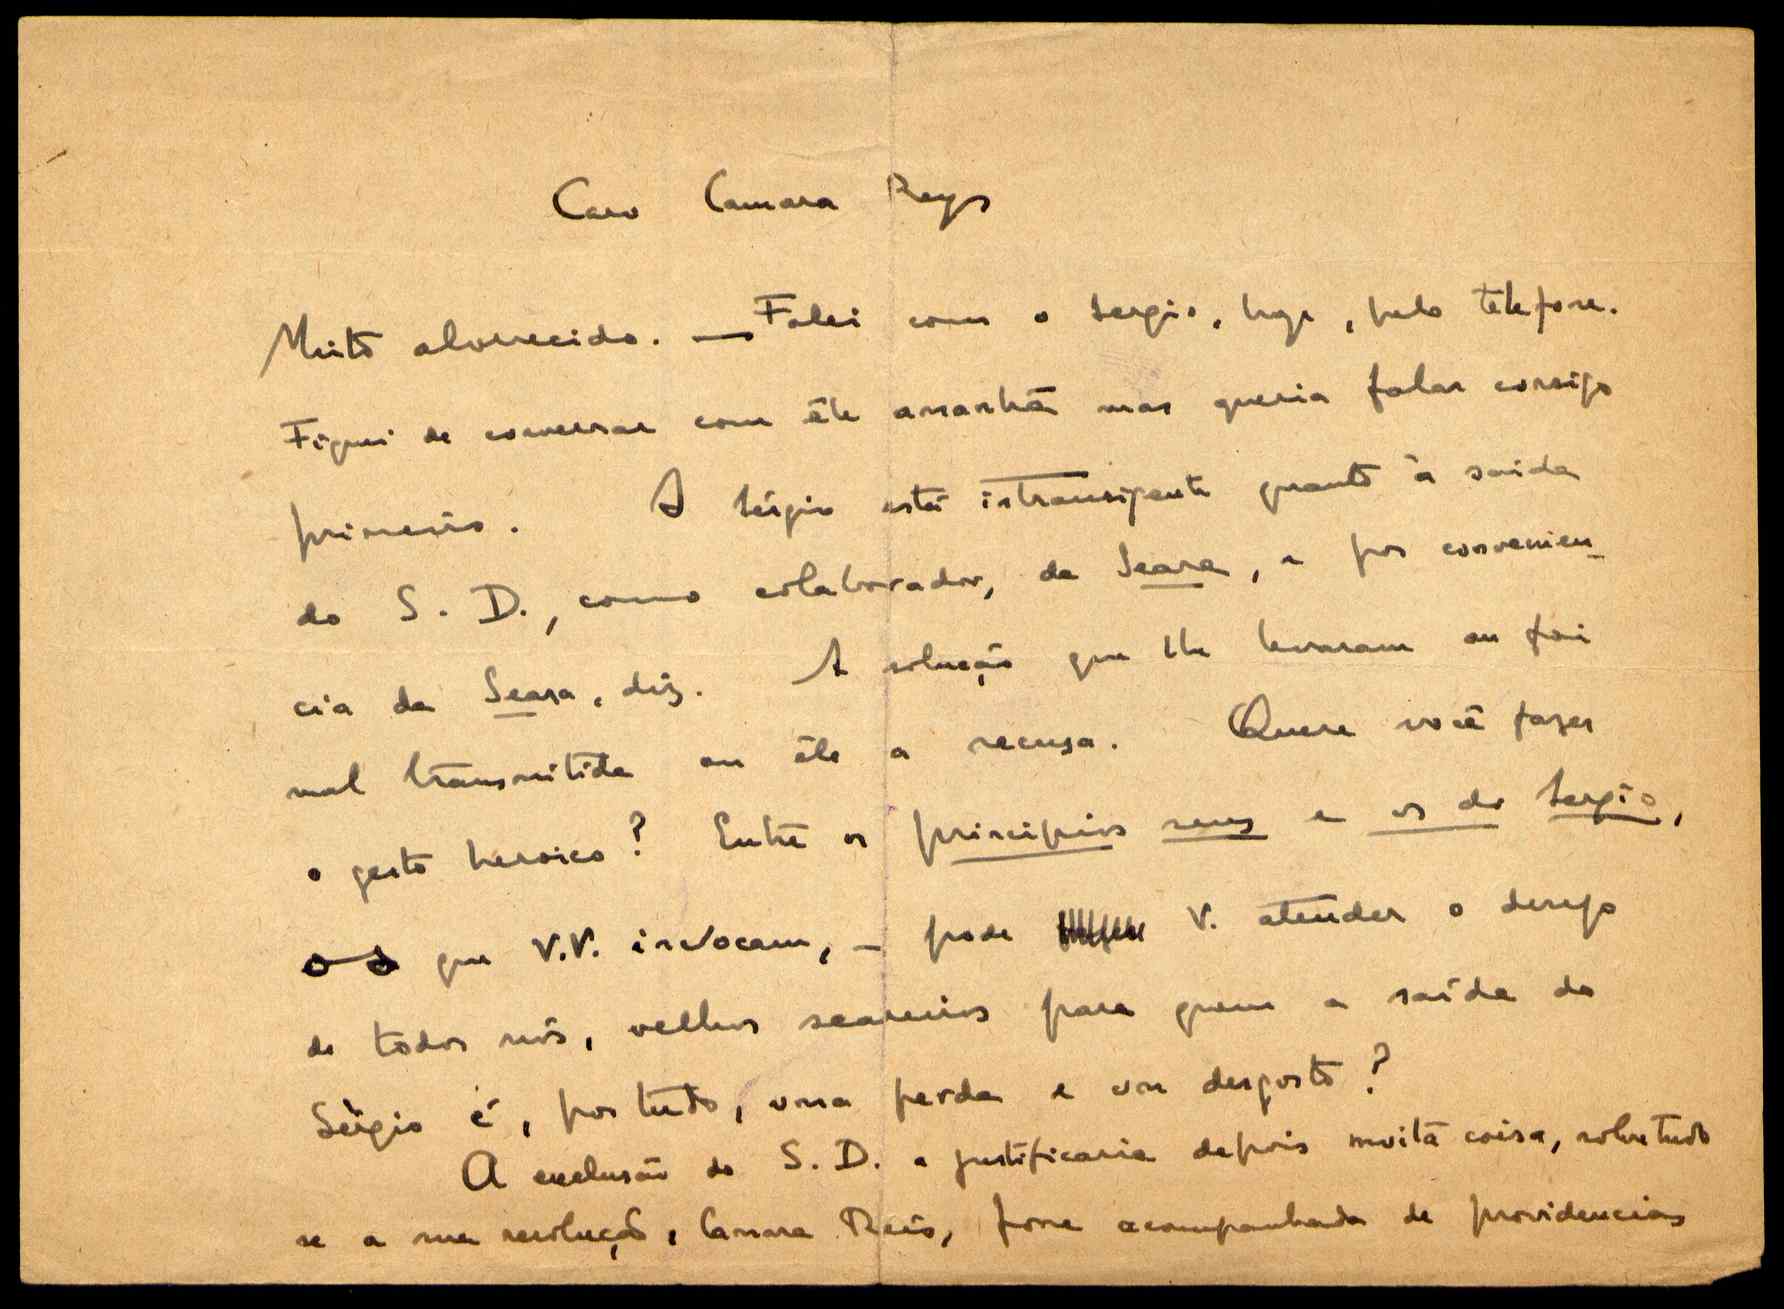 Caro Camara Reys
Muito aborrecido. — Falei com o Sergio, hoje, pelo telefone.
Fiquei de conversar com êle amanhã mas queria falar consigo
primeiro. O Sérgio está intransigente quanto à saida
do S. D., como colaborador, da Seara, e por convenien-
cia da Seara, diz. A solução que lhe levaram ou foi
mal transmitida ou êle a recusa. Quere você fazer
o gesto heroico? Entre os principios seus e os do Sergio,
que V.V. invocam, — pode V. atender o desejo
de todos nós, velhos seareiros para quem a saída do
Sérgio é, por tudo, uma perda e um desgosto?
A exclusão do S. D. a justificaria depois muita coisa, sobretudo
se a sua resolução, Camara Reis, fosse acompanhada de providencias